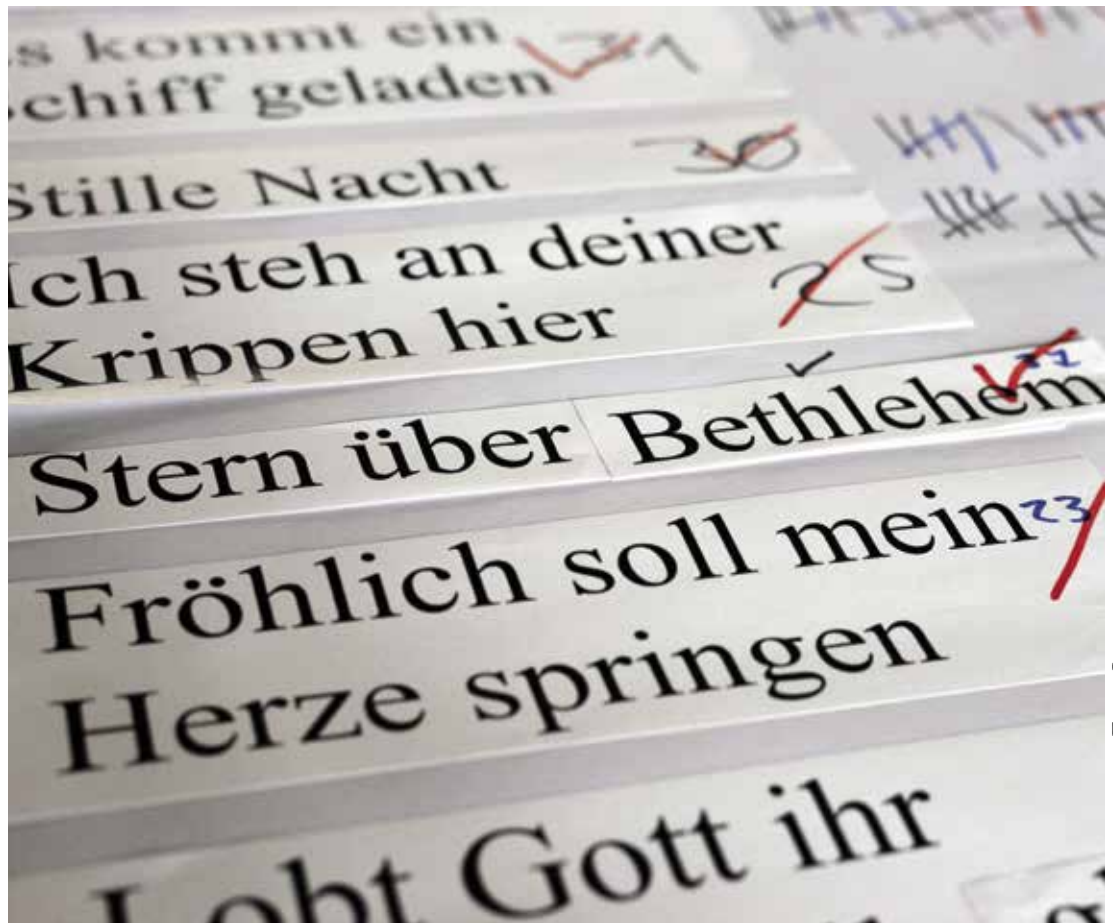 s kommt ein
schiff geladen
Stille Nacht 30
Ich steh an deiner
Krippen hier 25
Stern über Bethlehem
Fröhlich soll mein 23
Herze springen
Lobt Gott ihr